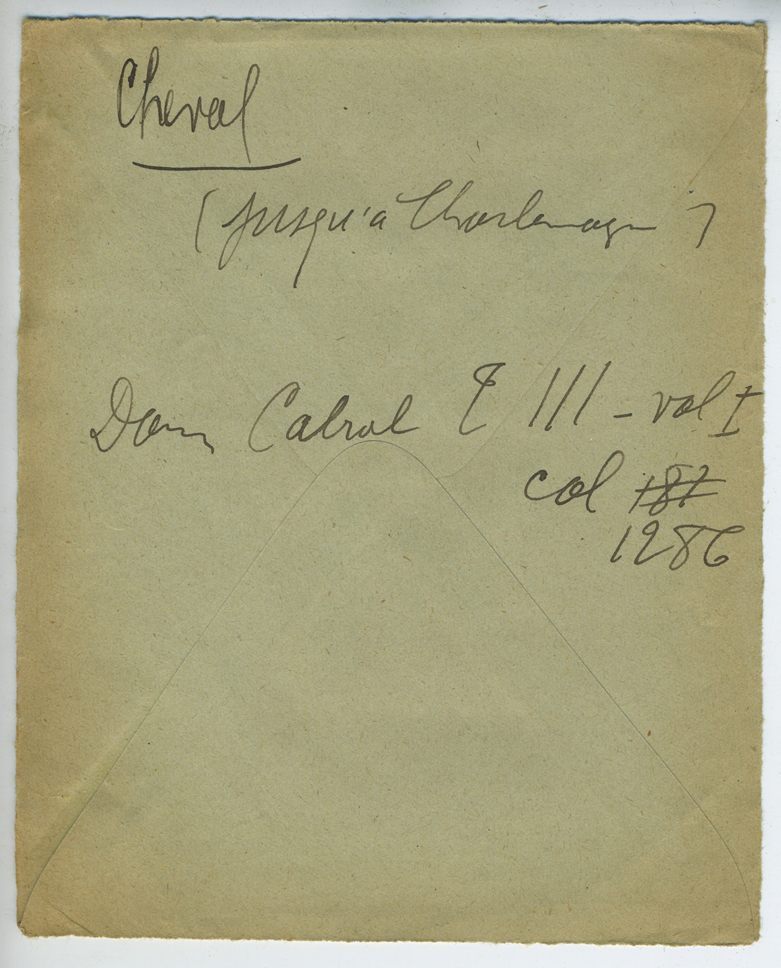 Cheval
(jusqu'à Charlemagne)
Dom Cabrol T III - vol I
col 187
1286